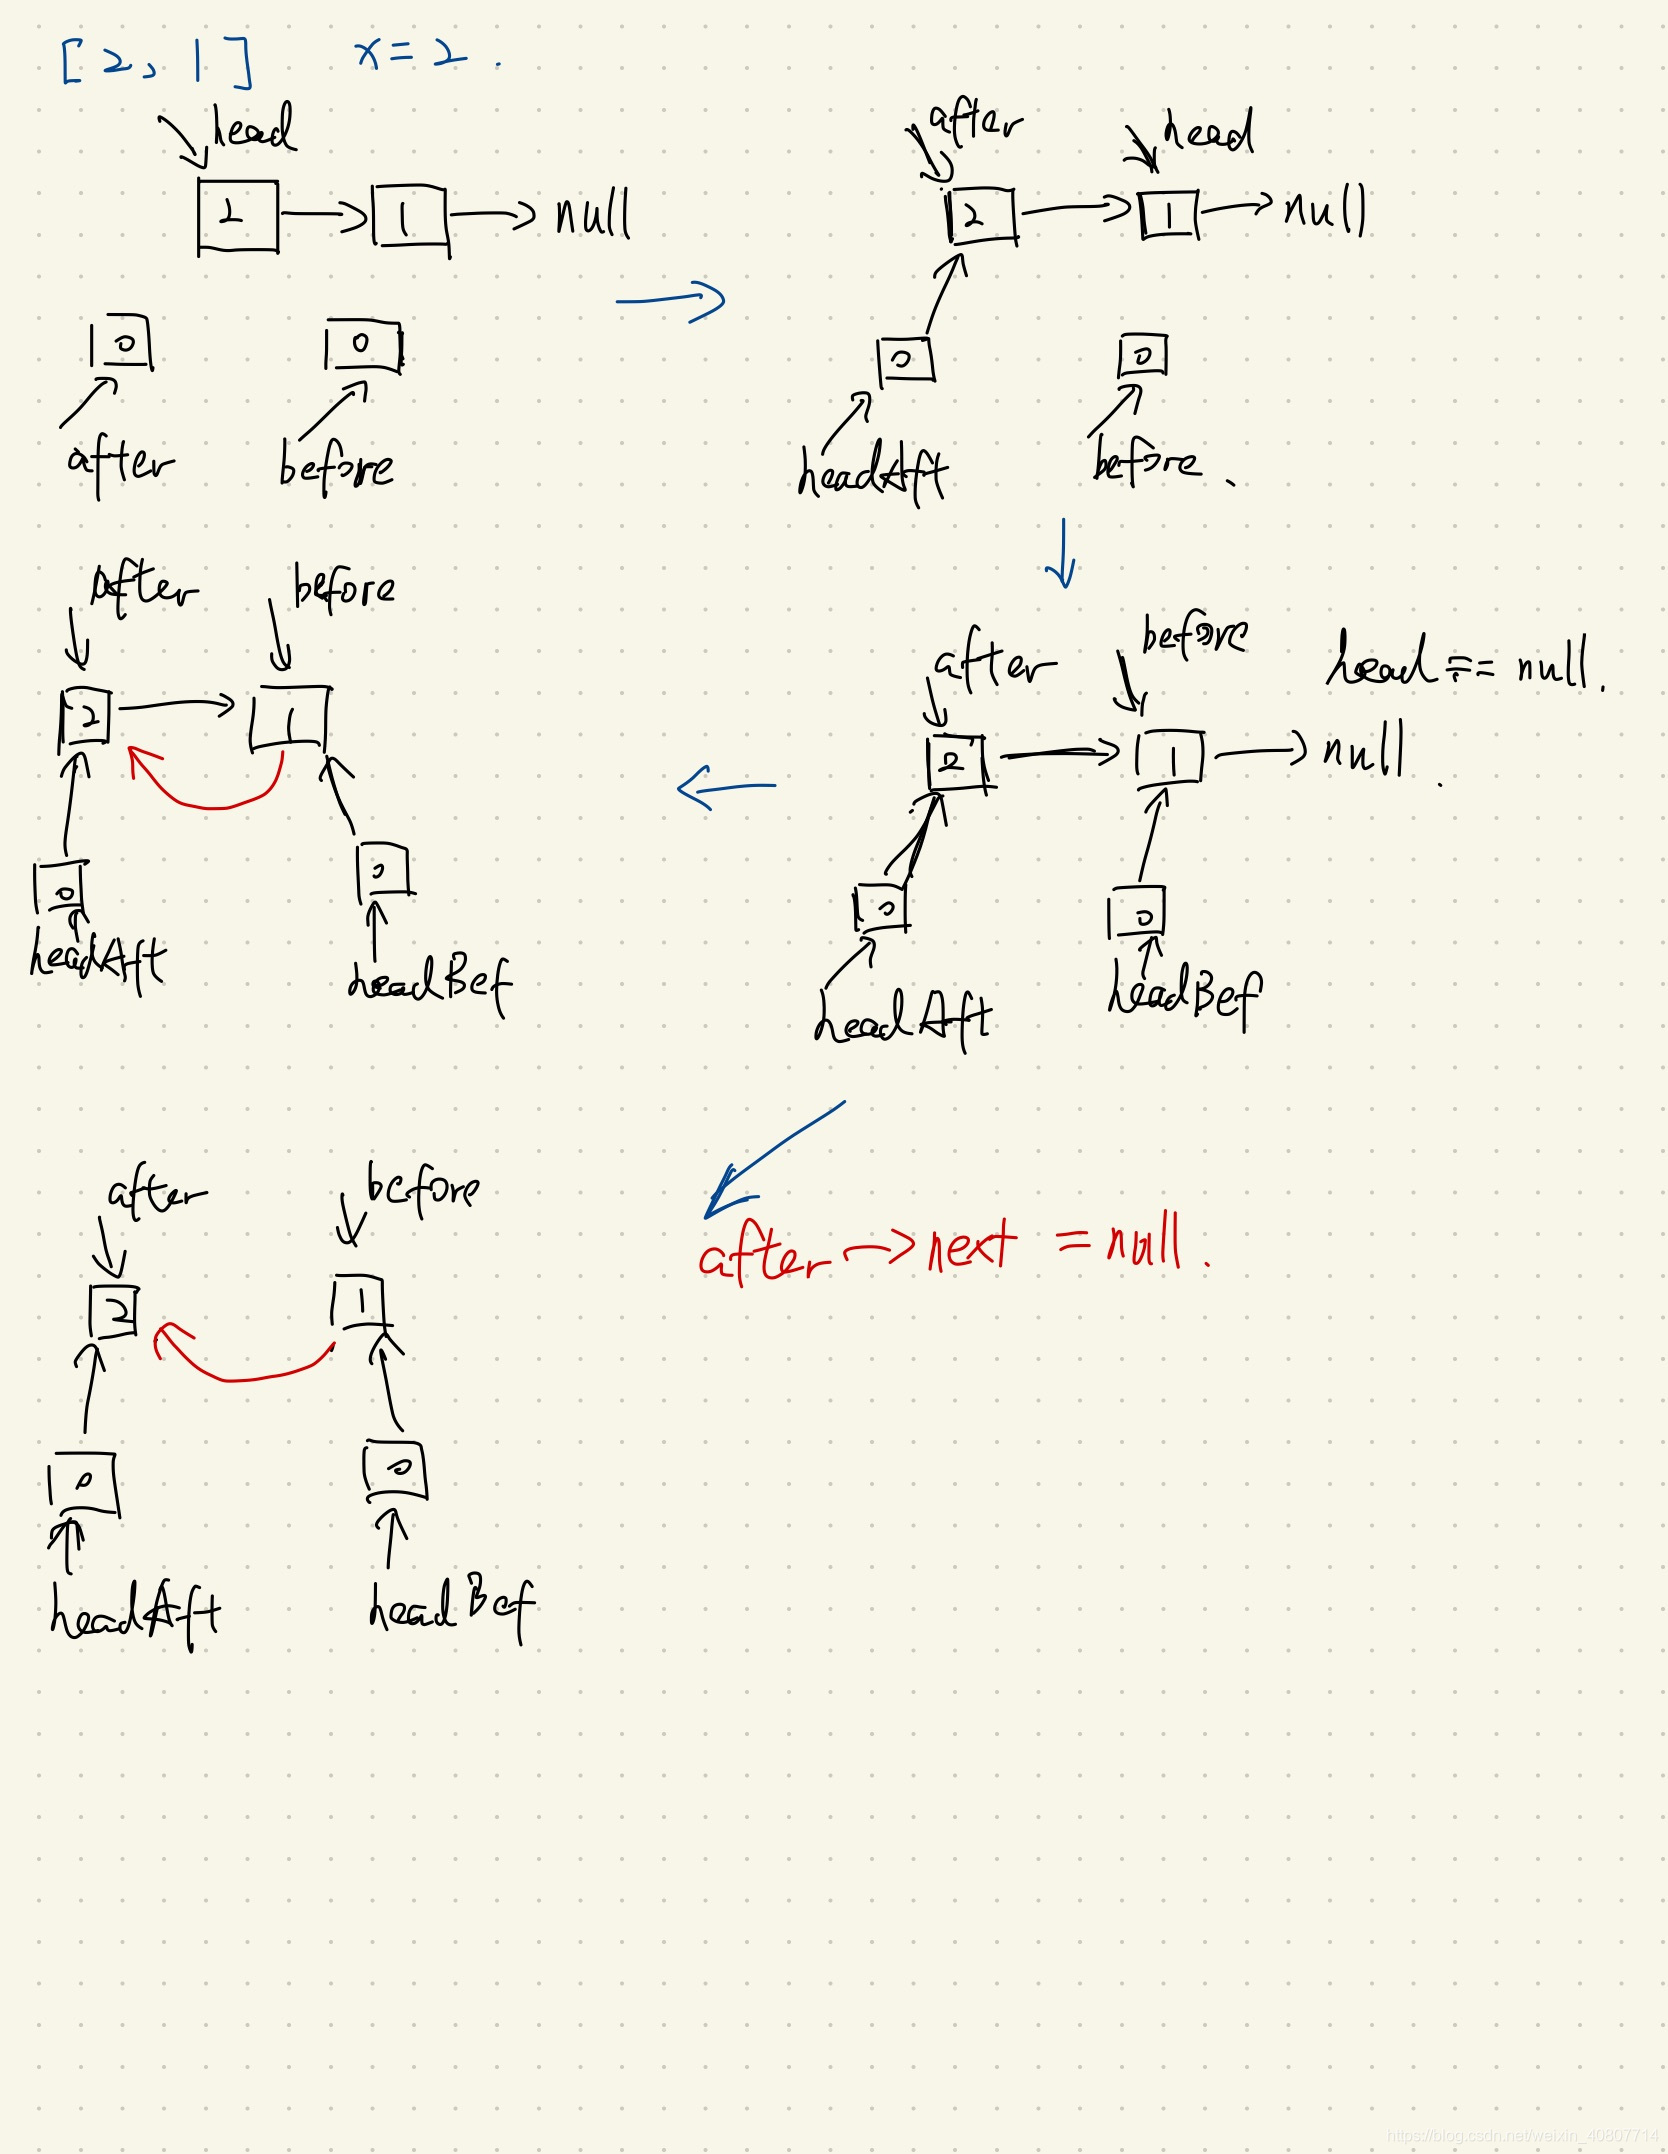 [2, 1] x=2.
head
2 1 null
0 0
after before
after head
2 1 null
0 0
headAft before.
after before
2 1
0 0
headAft headBef
after before head == null.
2 1 null.
0 0
headAft headBef
after → next = null.
after before
2 1
0 0
headAft headBef
https://blog.csdn.net/weixin_40807714